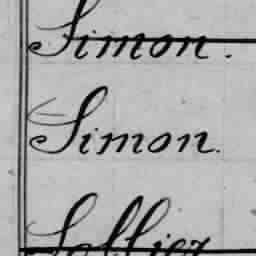 Simon.
Simon.